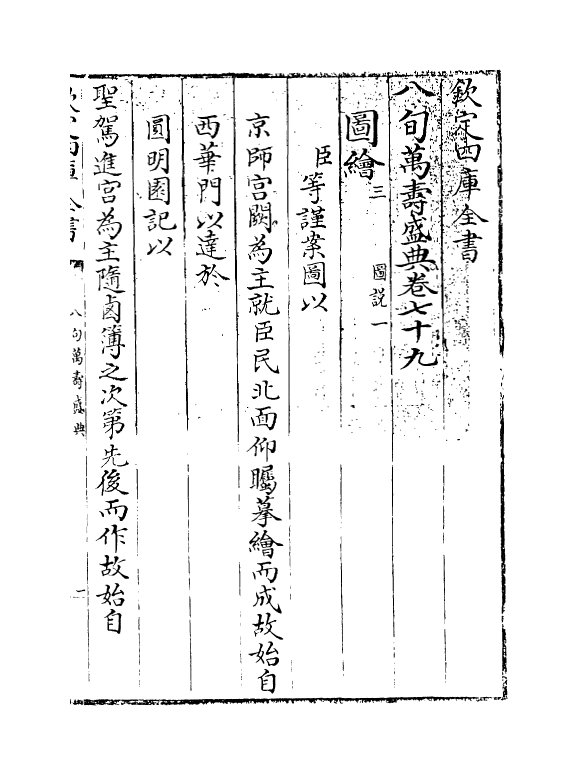 欽定四庫全書
八旬萬壽盛典卷七十九
圖繪三　圖說一
臣等謹案圖以
京師宫闕為主就臣民北面仰矚摹繪而成故始自
西華門以達於
圓明園記以
聖駕進宫為主隨鹵簿之次第先後而作故始自
欽定四庫全書　八旬萬壽盛典　一